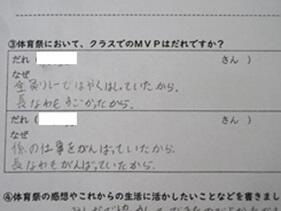 ③体育祭において、クラスでのMVPはだれですか?
だれ( さん )
なぜ
全員リレーではやくはしっていたから。
長なわもすごかったから。
だれ( さん )
なぜ
係の仕事をがんばっていたから。
長なわもがんばっていたから。
④体育祭の感想やこれからの生活に活かしたいことなどを書きまし